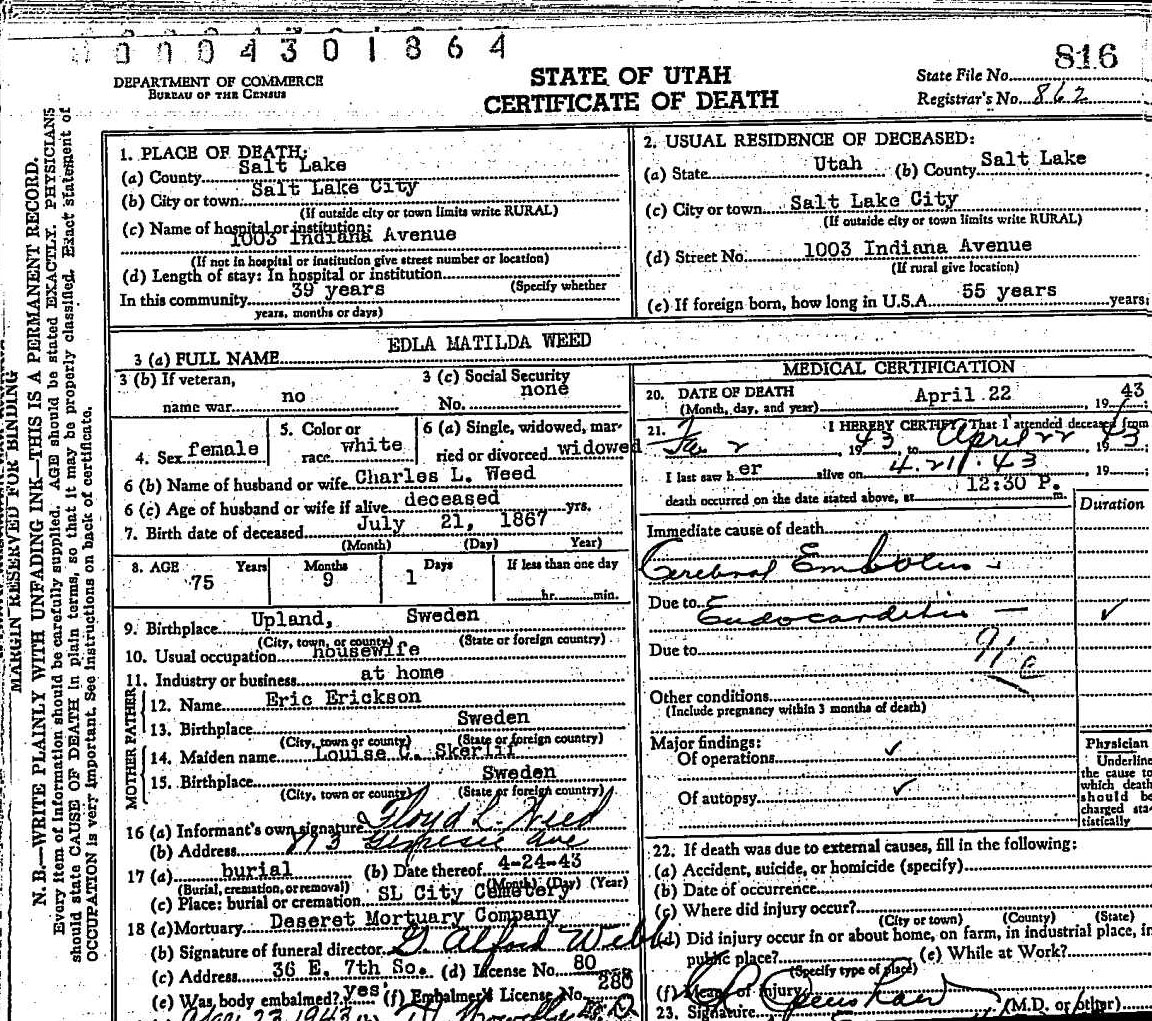 0004301864
816
DEPARTMENT OF COMMERCE
BUREAU OF THE CENSUS
STATE OF UTAH
CERTIFICATE OF DEATH
State File No.
Registrar's No. 862
MARGIN RESERVED FOR BINDING
N. B.—WRITE PLAINLY WITH UNFADING INK—THIS IS A PERMANENT RECORD.
Every item of information should be carefully supplied. AGE should be stated EXACTLY. PHYSICIANS
should state CAUSE OF DEATH in plain terms, so that it may be properly classified. Exact statement of
OCCUPATION is very important. See instructions on back of certificate.
1. PLACE OF DEATH:
(a) County Salt Lake
(b) City or town Salt Lake City
(If outside city or town limits write RURAL)
(c) Name of hospital or institution:
1003 Indiana Avenue
(If not in hospital or institution give street number or location)
(d) Length of stay: In hospital or institution
(Specify whether
In this community 39 years
years, months or days)
2. USUAL RESIDENCE OF DECEASED:
(a) State Utah (b) County Salt Lake
(c) City or town Salt Lake City
(If outside city or town limits write RURAL)
(d) Street No. 1003 Indiana Avenue
(If rural give location)
(e) If foreign born, how long in U.S.A. 55 years years;
3 (a) FULL NAME EDLA MATILDA WEED
3 (b) If veteran, name war no
3 (c) Social Security No. none
4. Sex female
5. Color or race white
6 (a) Single, widowed, married or divorced widowed
6 (b) Name of husband or wife Charles L. Weed
6 (c) Age of husband or wife if alive deceased yrs.
7. Birth date of deceased July 21, 1867
(Month) (Day) Year)
8. AGE Years Months Days If less than one day
75 9 1 hr. min.
9. Birthplace Upland, Sweden
(City, town, or county) (State or foreign country)
10. Usual occupation housewife
11. Industry or business at home
FATHER
12. Name Eric Erickson
13. Birthplace Sweden
(City, town or county) (State or foreign country)
MOTHER
14. Maiden name Louise C.
15. Birthplace Sweden
(City, town or county) (State or foreign country)
16 (a) Informant's own signature Floyd L. Weed
(b) Address 873 Genesee Ave
17 (a) burial (b) Date thereof 4-24-43
(Burial, cremation, or removal) (Month) (Day) (Year)
(c) Place: burial or cremation SL City Cemetery
18 (a) Mortuary Deseret Mortuary Company
(b) Signature of funeral director
(c) Address 36 E. 7th So. (d) License No. 80
(e) Was body embalmed? yes (f) Embalmer's License No. 280
23 1943
MEDICAL CERTIFICATION
20. DATE OF DEATH April 22 , 19 43
(Month, day, and year)
21. I HEREBY CERTIFY, That I attended deceased from
Jan 2 19 43 to April 22 19 43
I last saw her alive on 4.21.43 , 19
death occurred on the date stated above, at 12:30 P. m.
Duration
Immediate cause of death
Cerebral Embolus
Due to Endocarditis —
Due to
Other conditions
(Include pregnancy within 3 months of death)
Major findings:
Of operations ✓
Of autopsy ✓
Physician
Underline
the cause to
which death
should be
charged sta-
tistically
22. If death was due to external causes, fill in the following:
(a) Accident, suicide, or homicide (specify)
(b) Date of occurrence
(c) Where did injury occur?
(City or town) (County) (State)
(d) Did injury occur in or about home, on farm, in industrial place, in
public place? (e) While at Work?
(Specify type of place)
(f) Means of injury
23. Signature (M.D. or other)